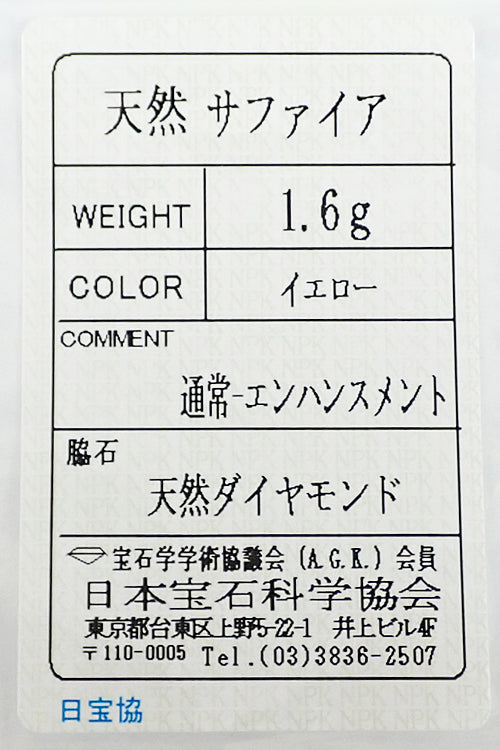 天然 サファイア
WEIGHT 1.6g
COLOR イエロー
COMMENT
通常-エンハンスメント
脇石
天然ダイヤモンド
宝石学学術協議会 (A.G.K.) 会員
日本宝石科学協会
東京都台東区上野5-22-1 井上ビル4F
〒110-0005 Tel.(03)3836-2507
日宝協